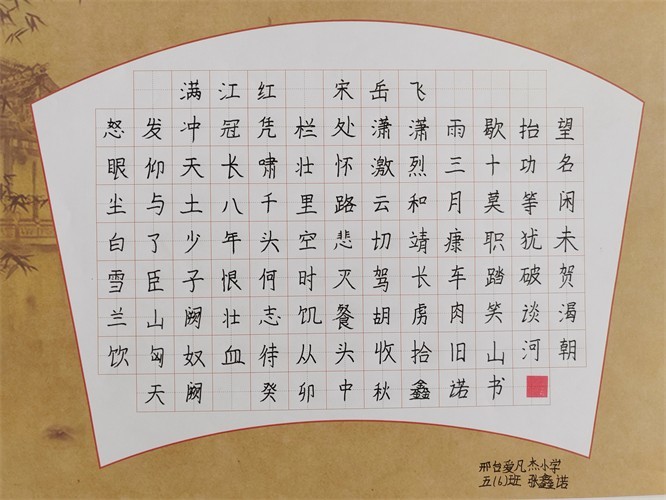 满江红 宋 岳飞
怒发冲冠凭栏处潇潇雨歇抬望
眼仰天长啸壮怀激烈三十功名
尘与土八千里路云和月莫等闲
白了少年头空悲切靖康耻犹未
雪臣子恨何时灭驾长车踏破贺
兰山阙壮志饥餐胡虏肉笑谈渴
饮匈奴血待从头收拾旧山河朝
天阙 癸卯中秋鑫诺书
邢台爱凡杰小学
五(6)班 张鑫诺